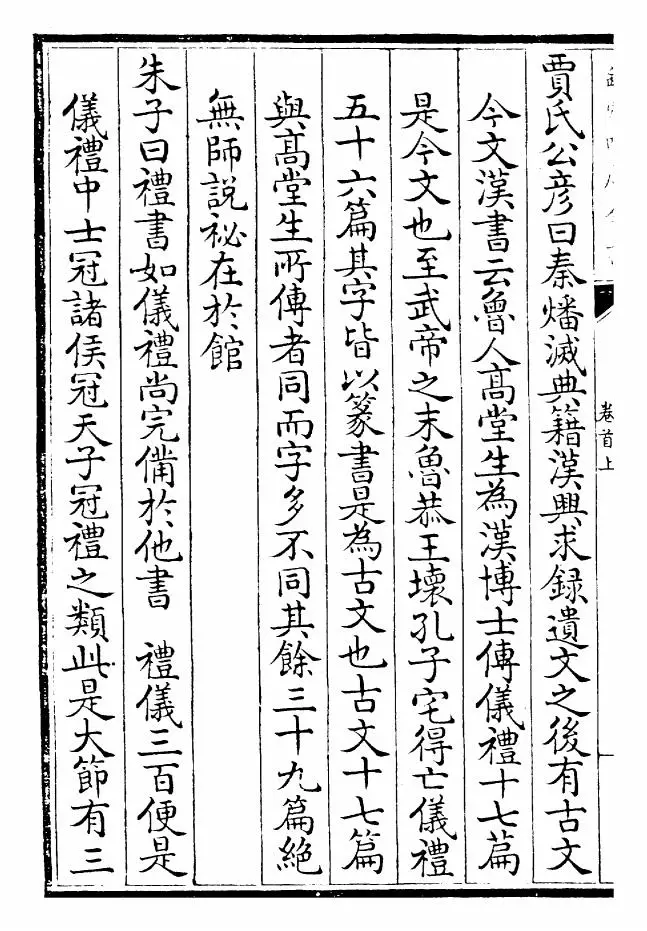 卷首上
賈氏公彦曰秦燔滅典籍漢興求録遺文之後有古文
今文漢書云魯人髙堂生為漢博士傳儀禮十七篇
是今文也至武帝之末魯恭王壞孔子宅得亡儀禮
五十六篇其字皆以篆書是為古文也古文十七篇
與髙堂生所傳者同而字多不同其餘三十九篇絶
無師說祕在於館
朱子曰禮書如儀禮尚完備於他書　禮儀三百便是
儀禮中士冠諸侯冠天子冠禮之類此是大節有三